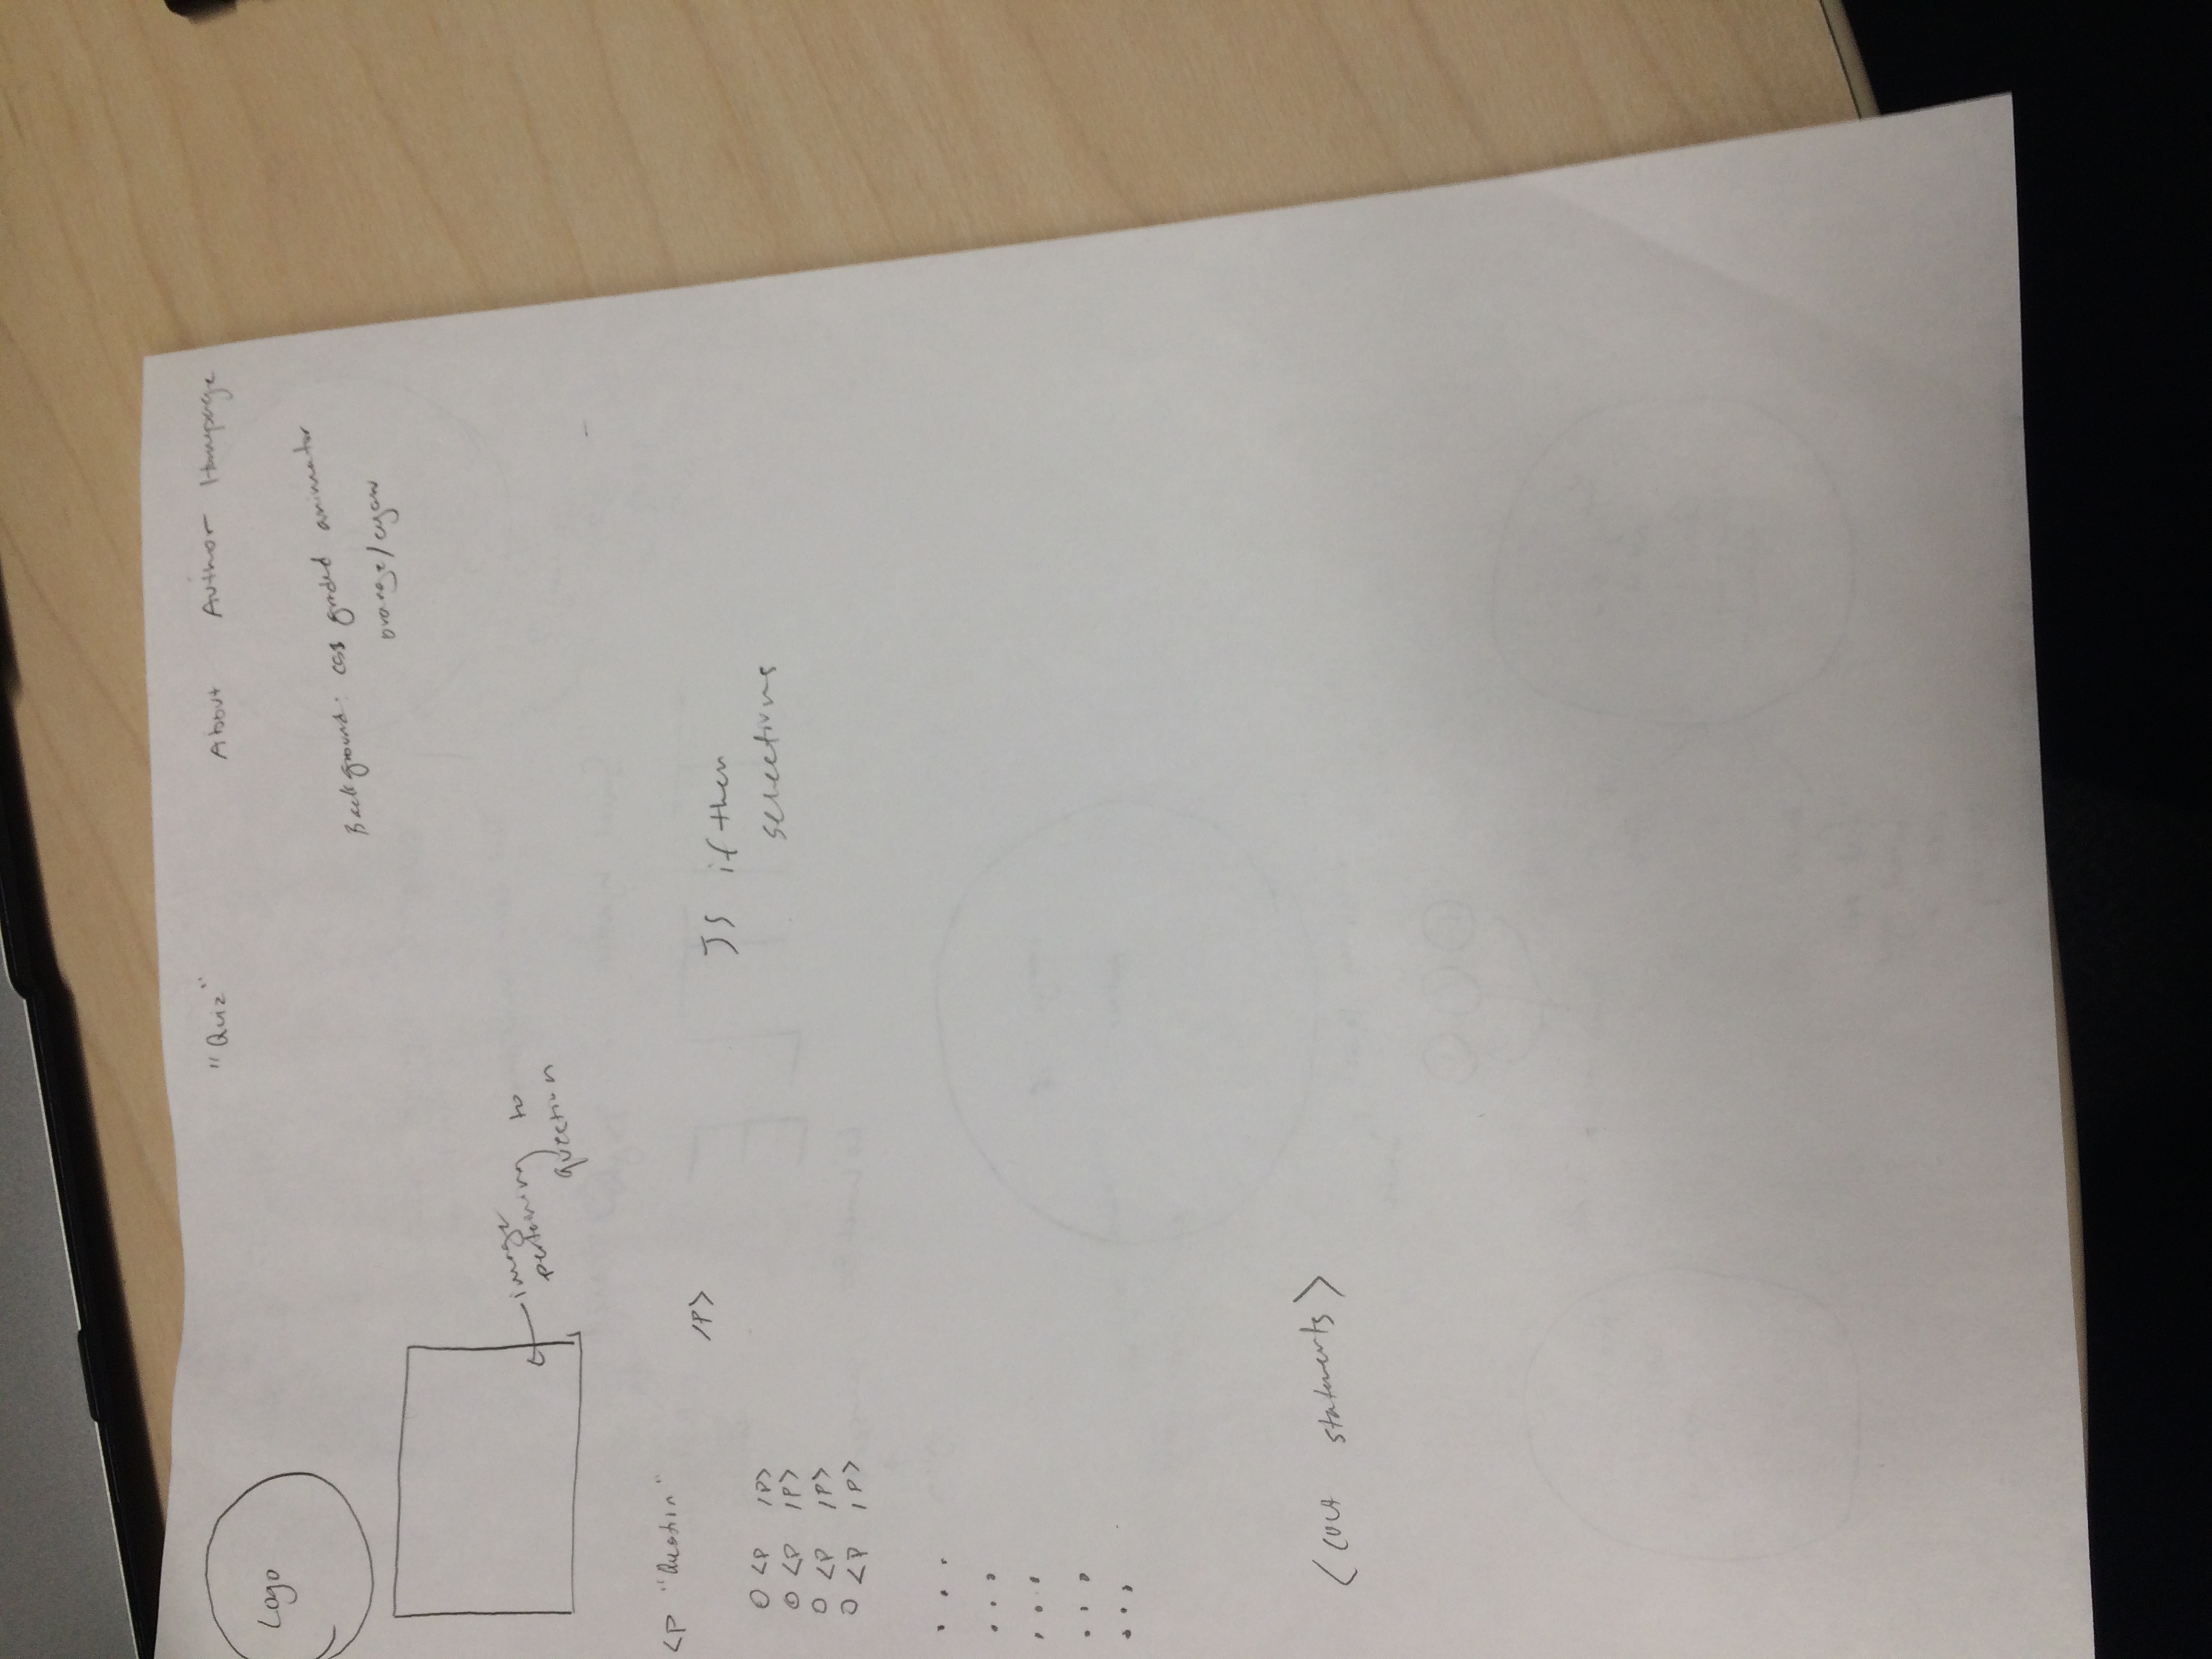 "Quiz" About Author Homepage
Logo
Background: css graded animator
orange/cyan
image
pertaining to
question
<P "Question"
/P>
JS if then
selections
O <P /P>
O <P /P>
O <P /P>
O <P /P>
. . .
. . .
. . .
. . .
. . .
< statements>